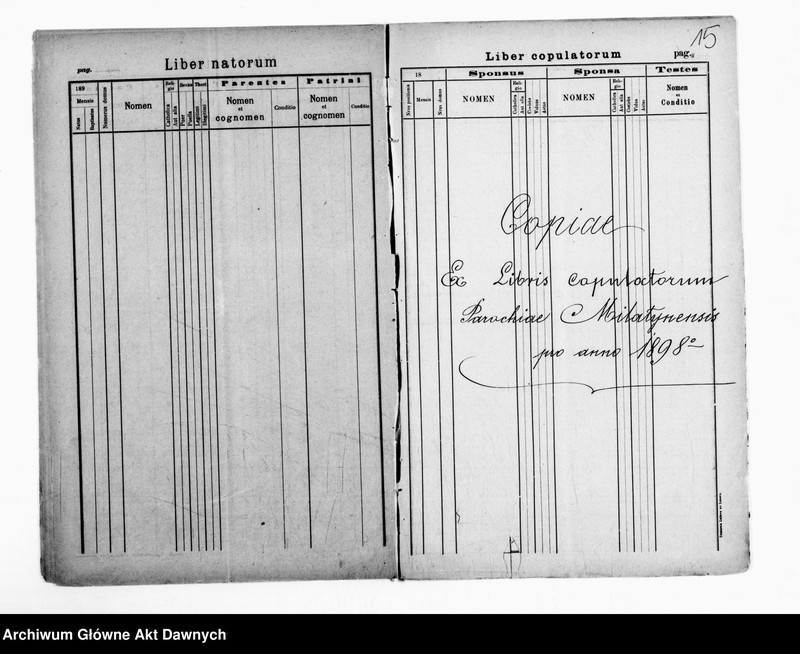 pag.
Liber natorum
189
Mensis
Natus
Baptisatus
Numerus domus
Nomen
Reli-
gio
Catholica
Aut alia
Sexus
Puer
Puella
Thori
Legitimi
Illegitimi
Parentes
Nomen
et
cognomen
Conditio
Patrini
Nomen
et
cognomen
Conditio
15
Liber copulatorum
pag.
18
Mensis
Nrus domus
Sponsus
NOMEN
Reli-
gio
Catholica
Aut alia
Viduus
Aetas
Sponsa
NOMEN
Reli-
gio
Catholica
Aut alia
Vidua
Aetas
Testes
Nomen
et
Conditio
Copiae
Ex Libris copulatorum
Parochiae Milatynensis
pro anno 1898º
Archiwum Główne Akt Dawnych